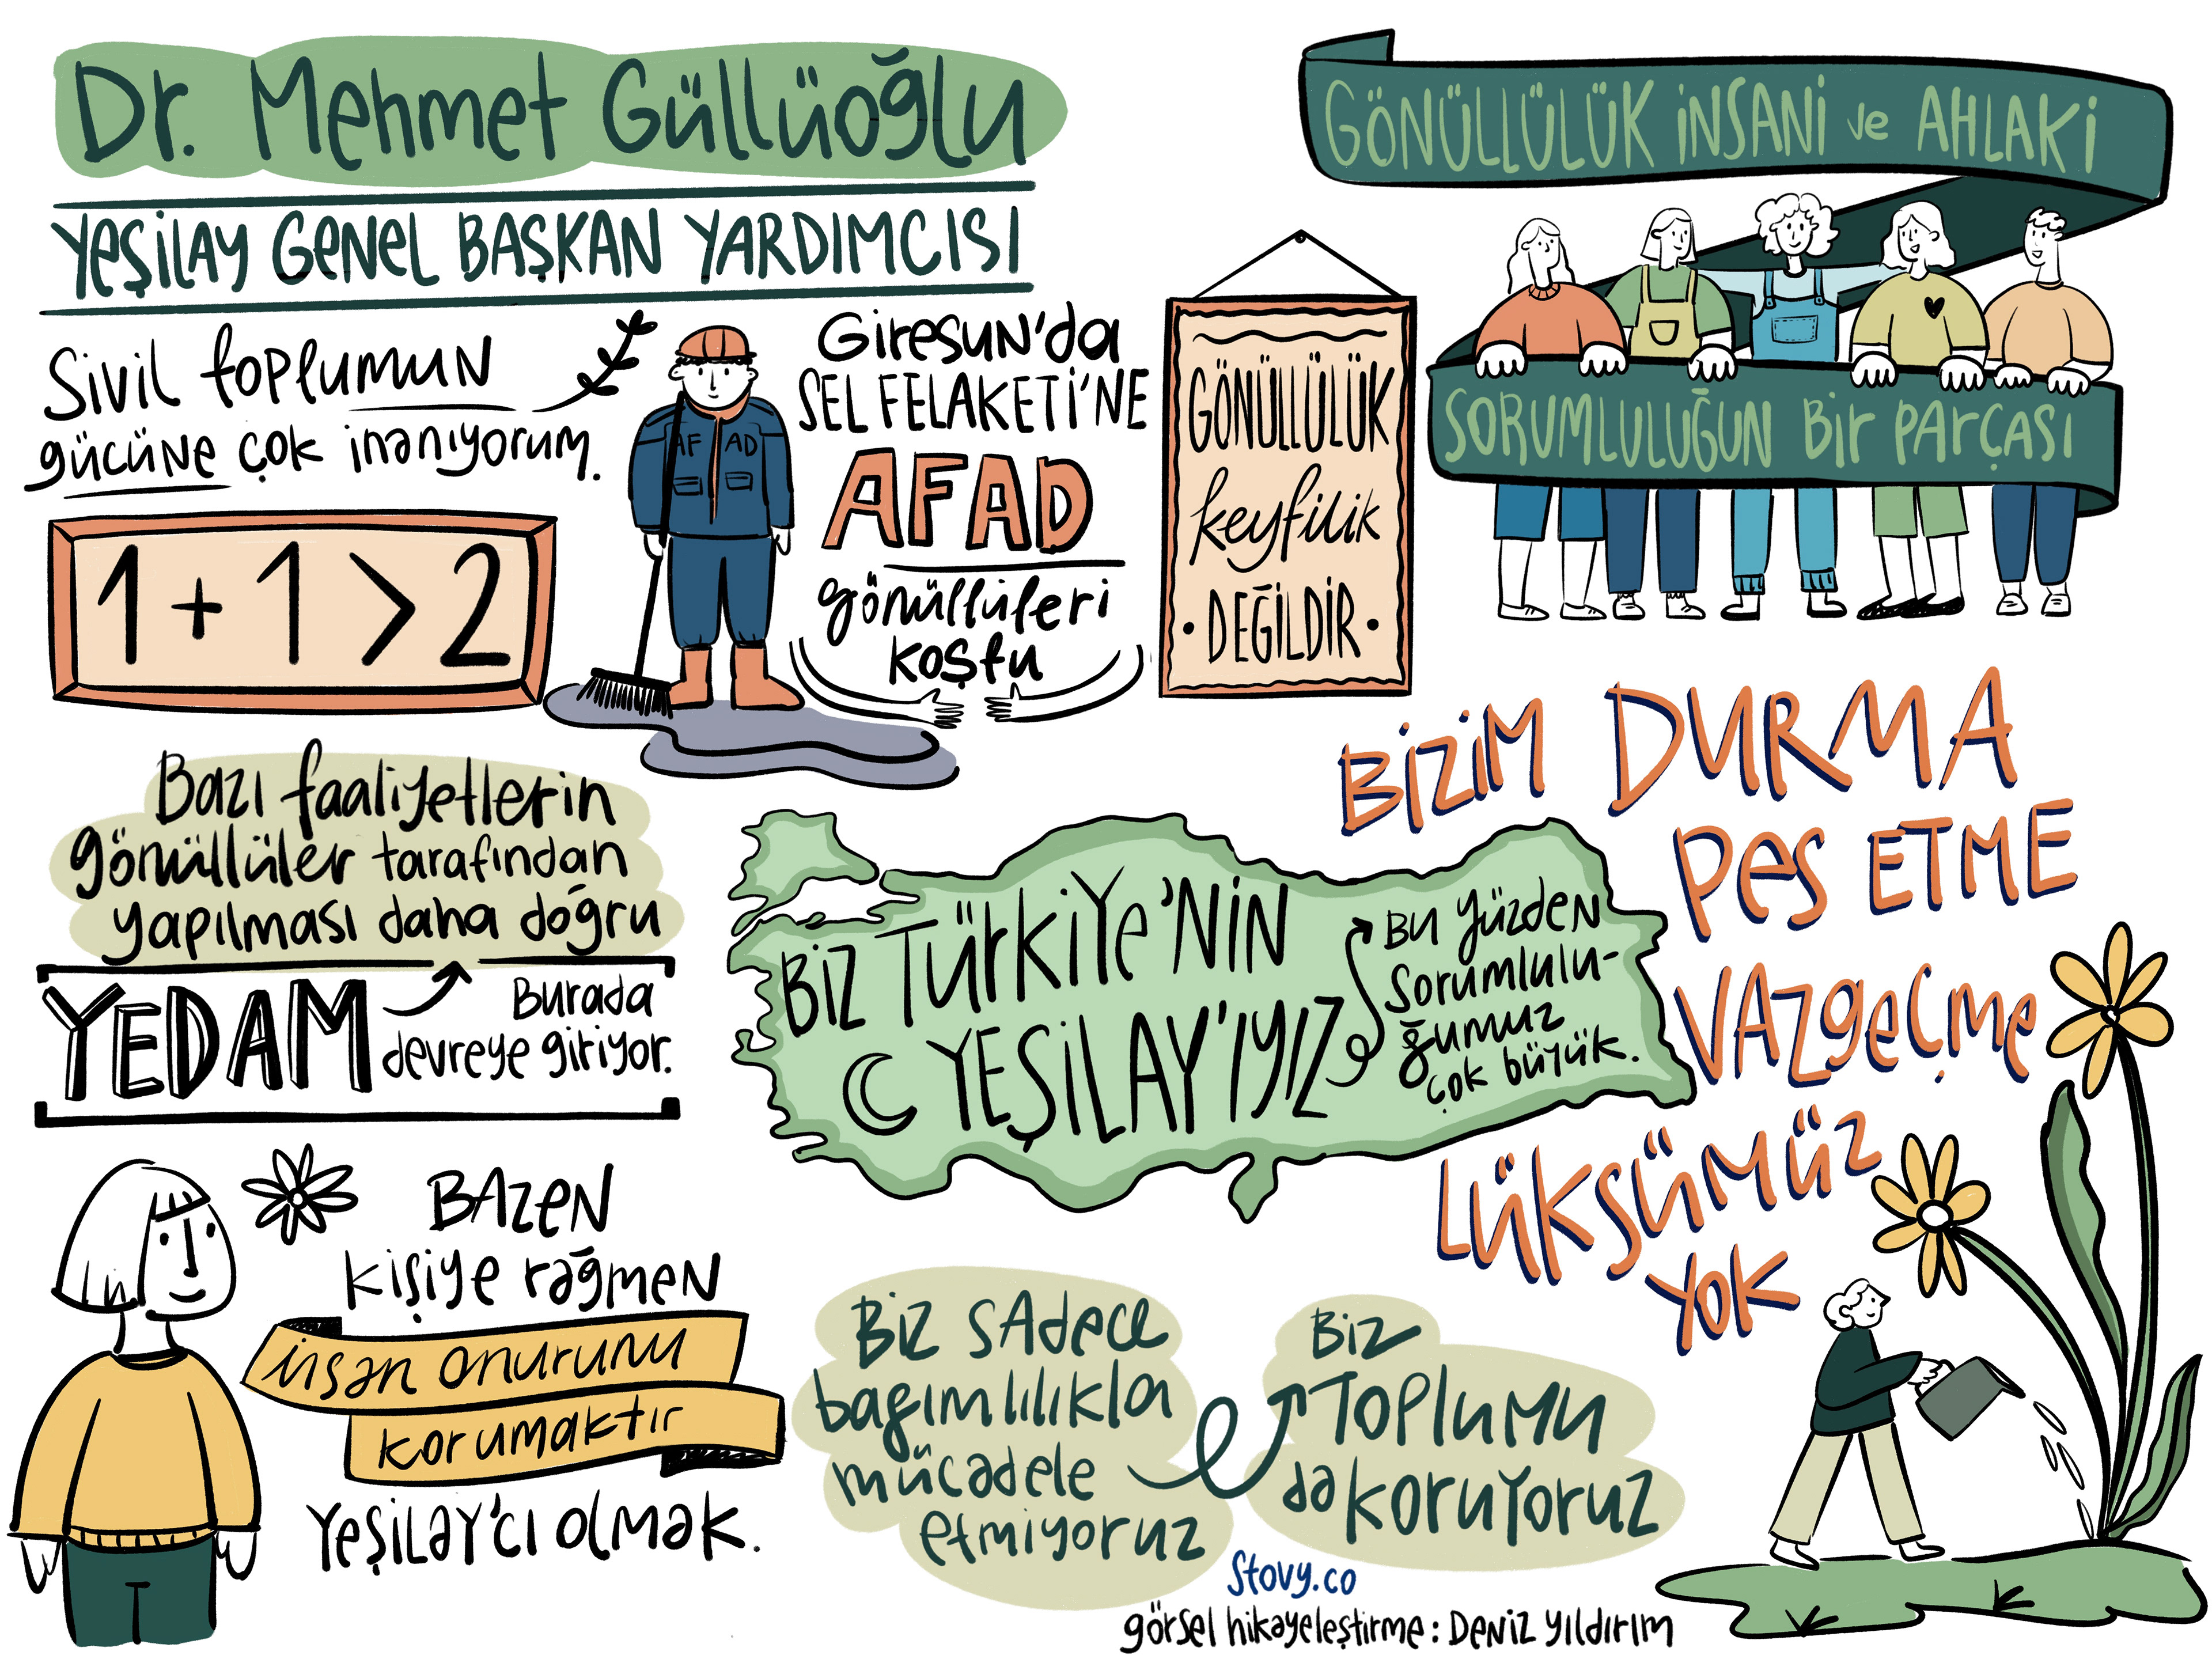 Dr. Mehmet Güllüoğlu
YEŞİLAY GENEL BAŞKAN YARDIMCISI
Sivil toplumun
gücüne çok inanıyorum.
1 + 1 > 2
AFAD
Giresun'da
SEL FELAKETİ'NE
AFAD
gönüllüleri
koştu
GÖNÜLLÜLÜK
keyfilik
• DEĞİLDİR •
GÖNÜLLÜLÜK İNSANİ ve AHLAKİ
SORUMLULUĞUN BİR PARÇASI
BİZİM DURMA
PES ETME
VAZGEÇME
LÜKSÜMÜZ
YOK
Bazı faaliyetlerin
gönüllüler tarafından
yapılması daha doğru
YEDAM
Burada
devreye giriyor.
BİZ TÜRKİYE'NİN
YEŞİLAY'IYIZ
Bu yüzden
Sorumlulu-
ğumuz
çok büyük.
BAZEN
kişiye rağmen
insan onurunu
korumaktır
Yeşilay'cı olmak.
Biz sadece
bağımlılıkla
mücadele
etmiyoruz
Biz
Toplumu
da koruyoruz
Stovy.co
görsel hikayeleştirme: Deniz Yıldırım